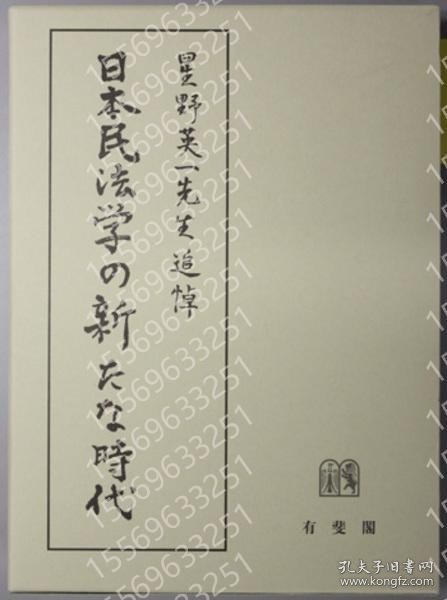 星野英一先生追悼
日本民法学の新たな時代
有斐閣
15569633251
孔夫子旧书网
www.kongfz.com